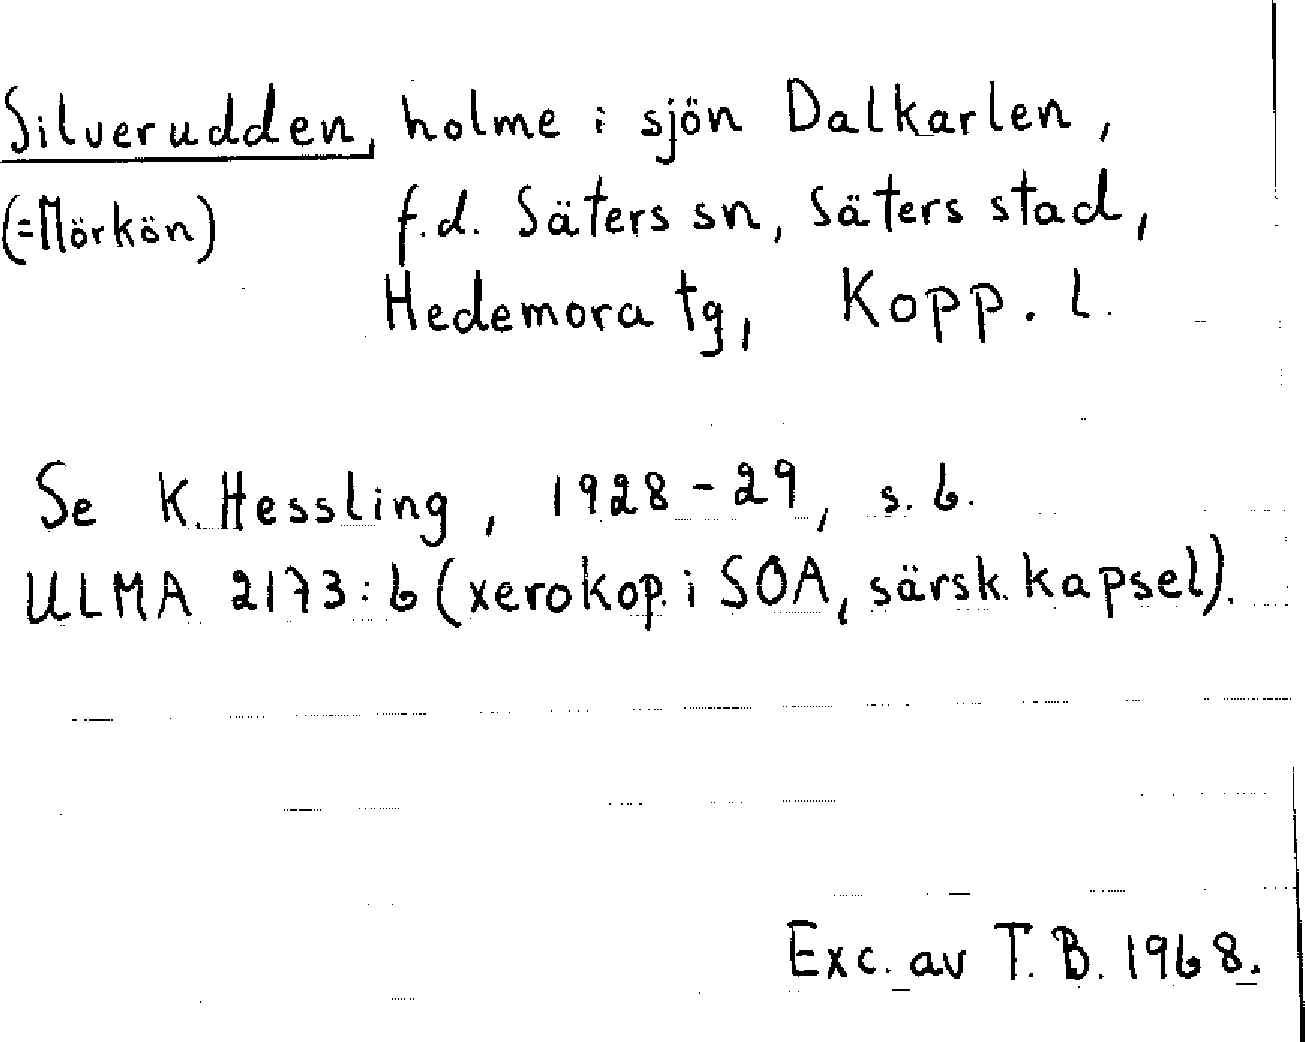 Silverudden, holme i sjön Dalkarlen,
(=Mörkön) f.d. Säters sn, Säters stad,
Hedemora tg, Kopp. l.
Se K. Hessling, 1928-29, s. 6.
ULMA 2173:6 (xerokop. i SOA, särsk. kapsel).
Exc. av T. B. 1968.